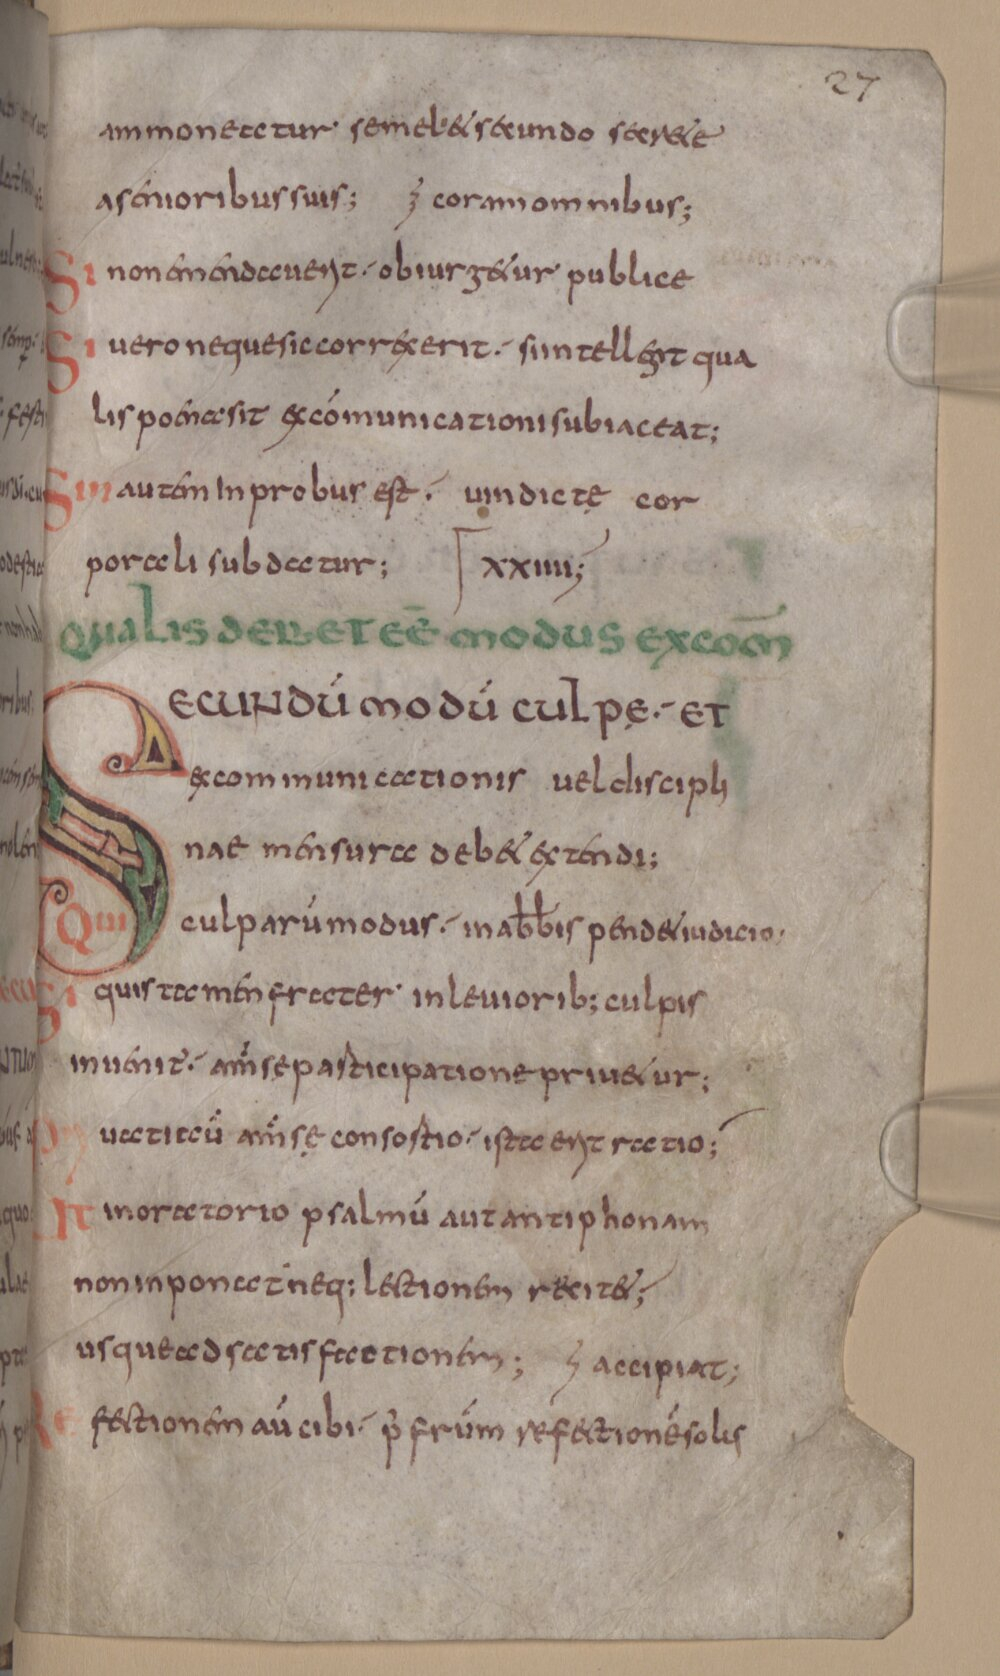 27
ammonetur semel & secundo secrete
a senioribus suis; coram omnibus;
Si non emendaverit· obiurg&ur publice
Si vero neque sic correxerit· si intellegit qua
lis poena sit excómunicationi subiaceat;
Sin autem Inprobus est· vindictę cor
porali subdatur; XXIIII;
QUALIS DEBET EEĒ MODUS EXCOM̄
SECUNDŪ MODŪ CULPĘ· ET
excommunicationis vel discipli
nae mensura deb& extendi;
Qui culparū modus· in abbis pend& iudicio·
Si quis tamen frater in levioribꝫ culpis
invenit· a m̄sę participatione priv&ur;
vati aū a m̄sę consortio· ista erit ratio;
Ut in oratorio psalmū aut antiphonam
non inponat neqꝫ lectionem recit&;
usque ad satisfactionem; accipiat;
Refectionem aū cibi· p̄ fr̄um refectionē solus